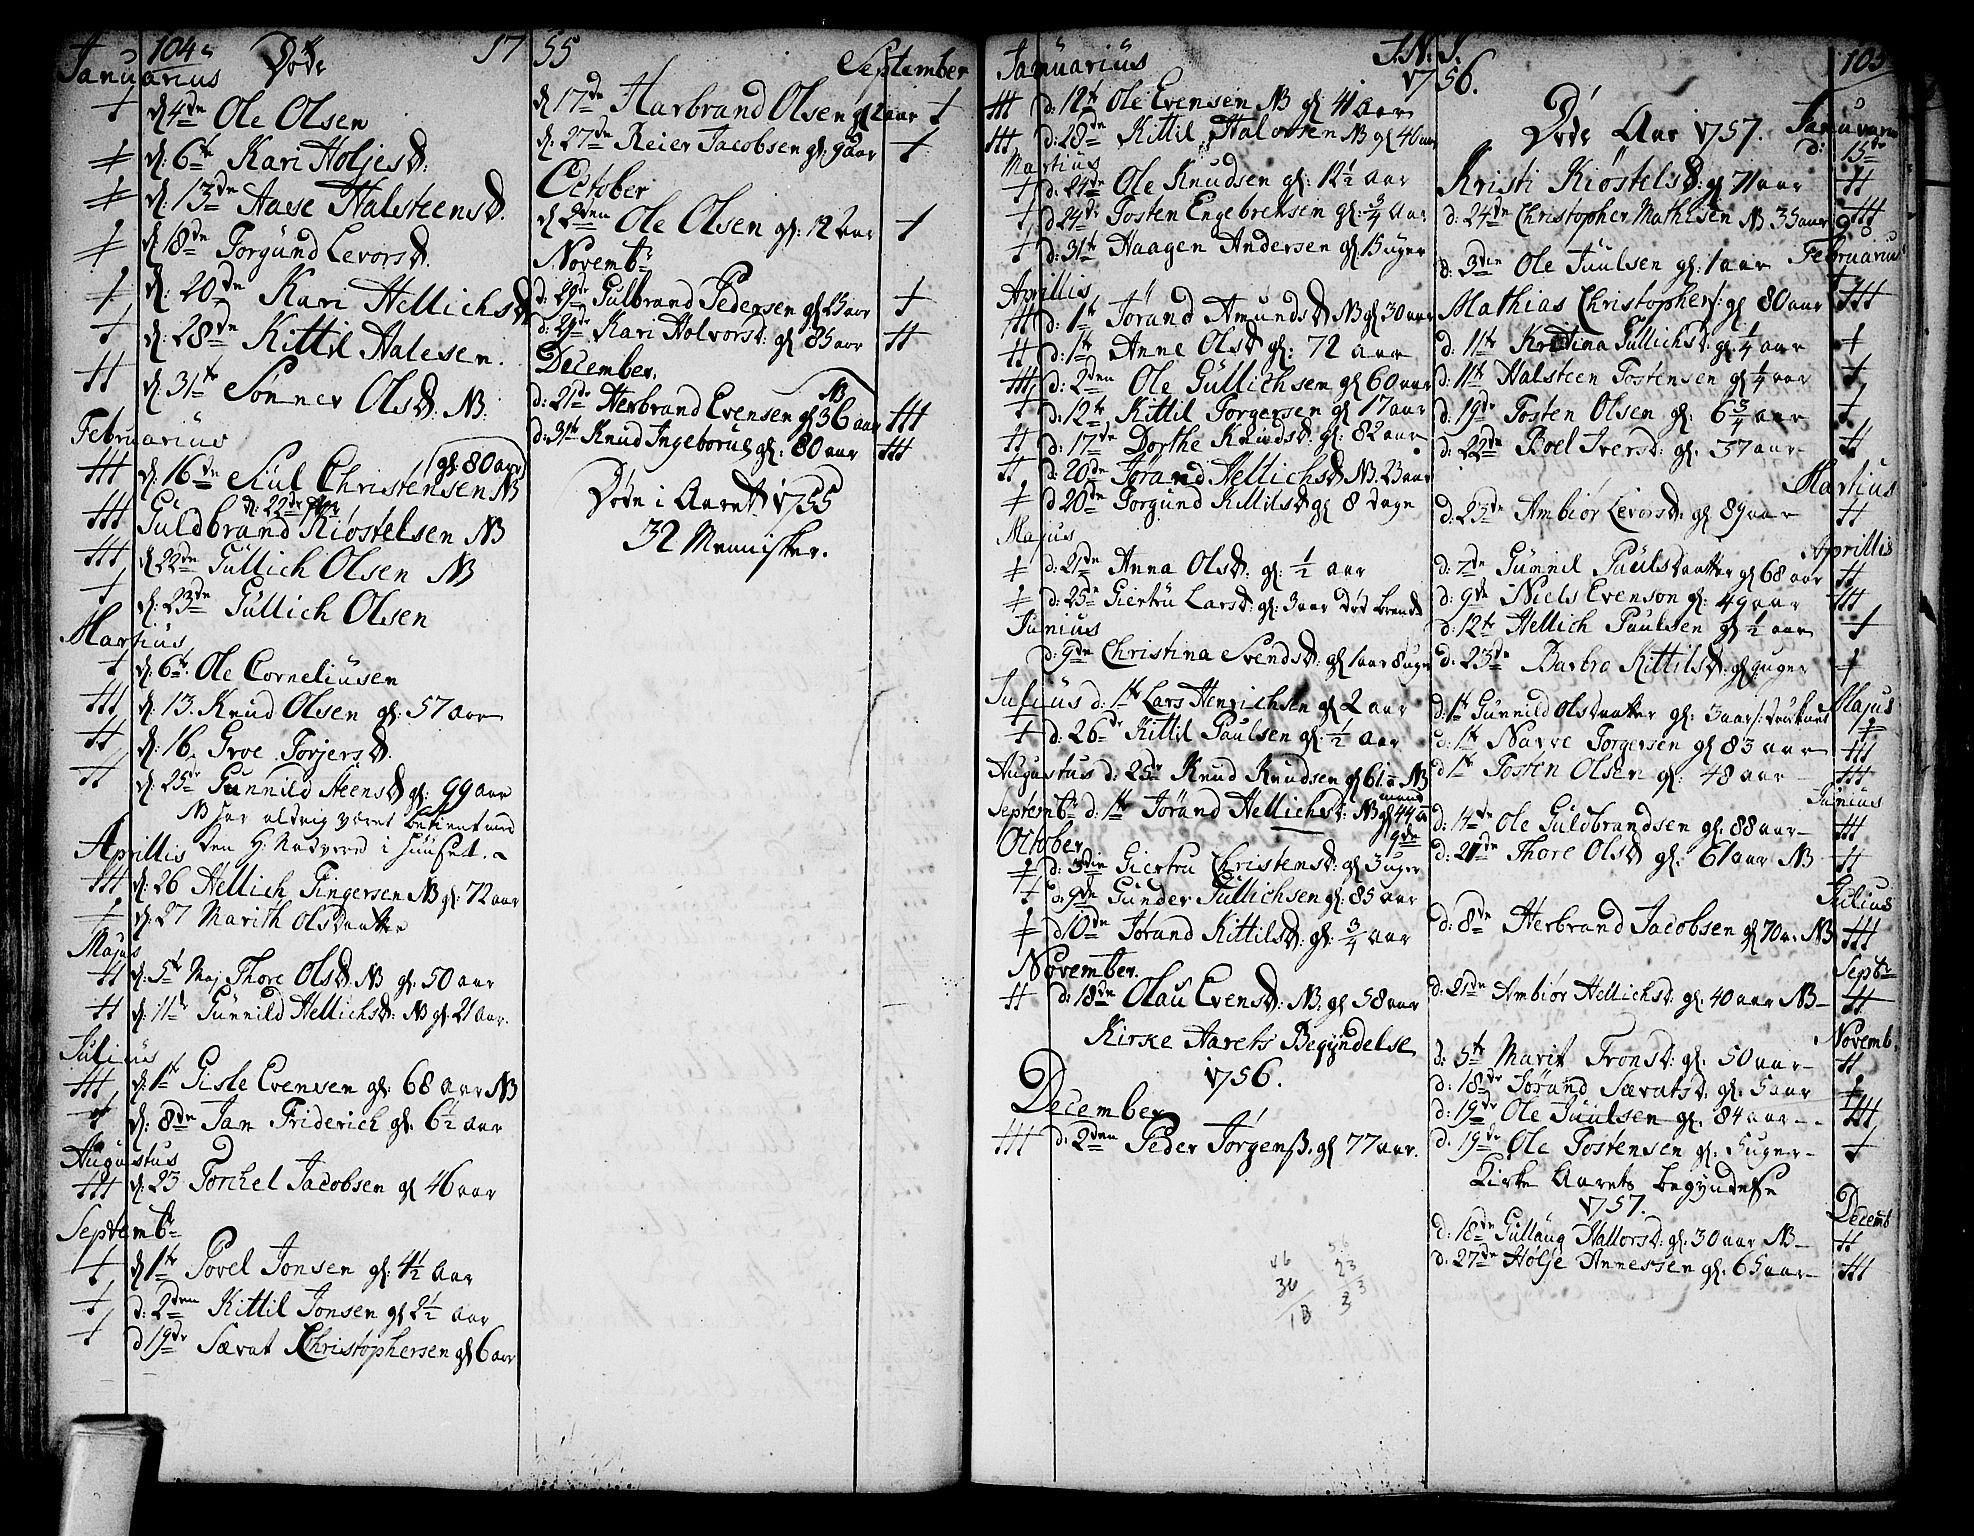 104
Døde 17
Januarius
d. 4de Ole Olsen
d. 6te Kari Holjesd.
d. 13de Aase Halsteensd.
d. 18de Torgund Levorsd.
d. 20de Kari Hellichsd
d. 28de Kittil Halesen.
d. 31te Sønner Olsd. NB.
Februarius
gl. 80 aar
d. 16de Siul Christensen NB
d. 22de
Guldbrand Kiøstelsen NB
d. 22de Gullich Olsen NB
d. 23de Gullich Olsen
Martius
d. 6te Ole Corneliusen
d. 13. Knud Olsen gl. 57 aar
d. 16. Groe Torjersd.
d. 25de Gunnild Steensd gl. 99 aar
NB har aldrig været betient med
den H. Nadvere i huuset.
Aprillis
d. 26 Hellich Tingersen NB gl. 72 aar
d. 27 Marith Olsdaatter
Majus
d. 5te Maj Thore Olsd. NB gl. 50 aar
d. 11te Gunnild Hellichsd: NB gl 21 aar.
Julius
d. 1te Gisle Evensen gl. 68 aar NB
d. 8de Jan Friderich gl. 6½ aar
Augustus
d. 23 Torchel Jacobsen gl 46 aar
Septembr
d 1te Povel Jonsen gl. 4½ aar
d. 2den Kittil Jonsen gl 2½ aar
d 19de Sævat Christophersen gl 6 aar
55
September
d 17de Harbrand Olsen gl 2 aar
d. 27de Reier Jacobsen gl. 9 aar
October
d 2den Ole Olsen gl. 12 aar
Novembr
d. 29de Gulbrand Pedersen gl. 13 aar
d. 29de Kari Holvorsd. gl. 85 aar
December.
NB
d. 21de Herbrand Evensen gl 36 aar
d. 31te Knud Ingeborus gl. 80 aar
Døde i Aaret 1755
32 Mennisker.
I.N.J.
1756.
Januarius
d. 12te Ole Evensen NB gl 41 aar
d. 18de Kittil Halvorsen NB gl 40 aar
Martius
d. 24de Ole Knudsen gl. 12½ aar
d 24de Tosten Engebretsen gl. ¾ aar
d. 31te Haagen Andersen gl 15 uger
Aprillis
d. 1te Jørand Amundsd NB gl 30 aar
d. 1te Anne Olsd gl. 72 aar
d. 2den Ole Gullichsen gl 60 aar
d. 12te Kittil Torgersen gl 17 aar
d. 17de Dorthe Knudsd. gl. 82 aar
d. 20de Jørand Hellichsd NB. 23 aar
d 20de Torgund Kittilsd gl 8 dage
Majus
d: 21de Anna Olsd. gl. ½ aar
d: 25de Giertru Larsd. gl. 3 aar død brendt
Junius
d. 9de Christina Svendsd. gl 1 aar 8 uger
Julius d. 1te Lars Henrichsen gl 2 aar
d. 26de Kittil Paulsen gl. ½ aar
Augustus d. 25de Knud Knudsen gl 61 NB
Septembr d. 1te Jørand Hellichsd: NB gl 44
October
d. 3die Giertru Christensd. gl 3 uger
d. 9de Gunder Gullichsen gl. 85 aar
d 10de Jørand Kittilsd. gl. ¾ aar
November.
d. 18de Olau Evensd: NB. gl 58 aar
Kirke Aarets Begyndelse
1756.
December
d. 2den Peder Jørgens. gl 77 aar.
105
Døde Aar 1757. Januari
d: 15de
Kristi Kiøstelsd. gl 71 aar
d. 24de Christopher Mathisen NB 35 aar
Februarius
d. 3die Ole Juulsen gl. 1 aar
Mathias Christophers. gl 80 aar
d. 11te Kristina Gullichsd. gl ¼ aar
d. 11te Halsteen Tostensen gl ¼ aar
d. 19de Tosten Olsen gl. 6 ¾ aar
d. 22de Boel Iversd. gl. 37 aar
Martius
d. 23de Ambiør Levorsd. gl 89 aar
Aprillis
d. 7de Gunnil Paulsdaatter gl 68 aar
d. 9de Niels Evenson gl. 49 aar
d. 12te Hellich Paulsen gl ½ aar
d. 23de Barbra Kittilsd. gl 9 uger
Majus
d. 1te Gunnild Olsdaatter gl. 3 aar druknet
d. 1te Navre Torgersen gl 83 aar
d 1te Tosten Olsen gl. 48 aar
Junius
d. 14de Ole Guldbrandsen gl. 88 aar
d. 21de Thore Olsd gl. 61 aar NB
Julius
d. 8de Herbrand Jacobsen gl 70 a. NB
Septbr
d. 21de Ambiør Hellichsd. gl. 40 aar NB
Novemb.
d. 5te Marit Tronsd. gl. 50 aar
d. 18de Jørand Sævatsd. gl. 5 aar
d. 19de Ole Juulsen gl. 84 aar
d. 19de Ole Tostensen gl. 5 uger
Kirke Aarets begyndelse
1757.
Decemb
d. 18de Gullaug Hallorsd. gl. 30 aar NB
d. 27de Holje Annessen gl. 65 aar